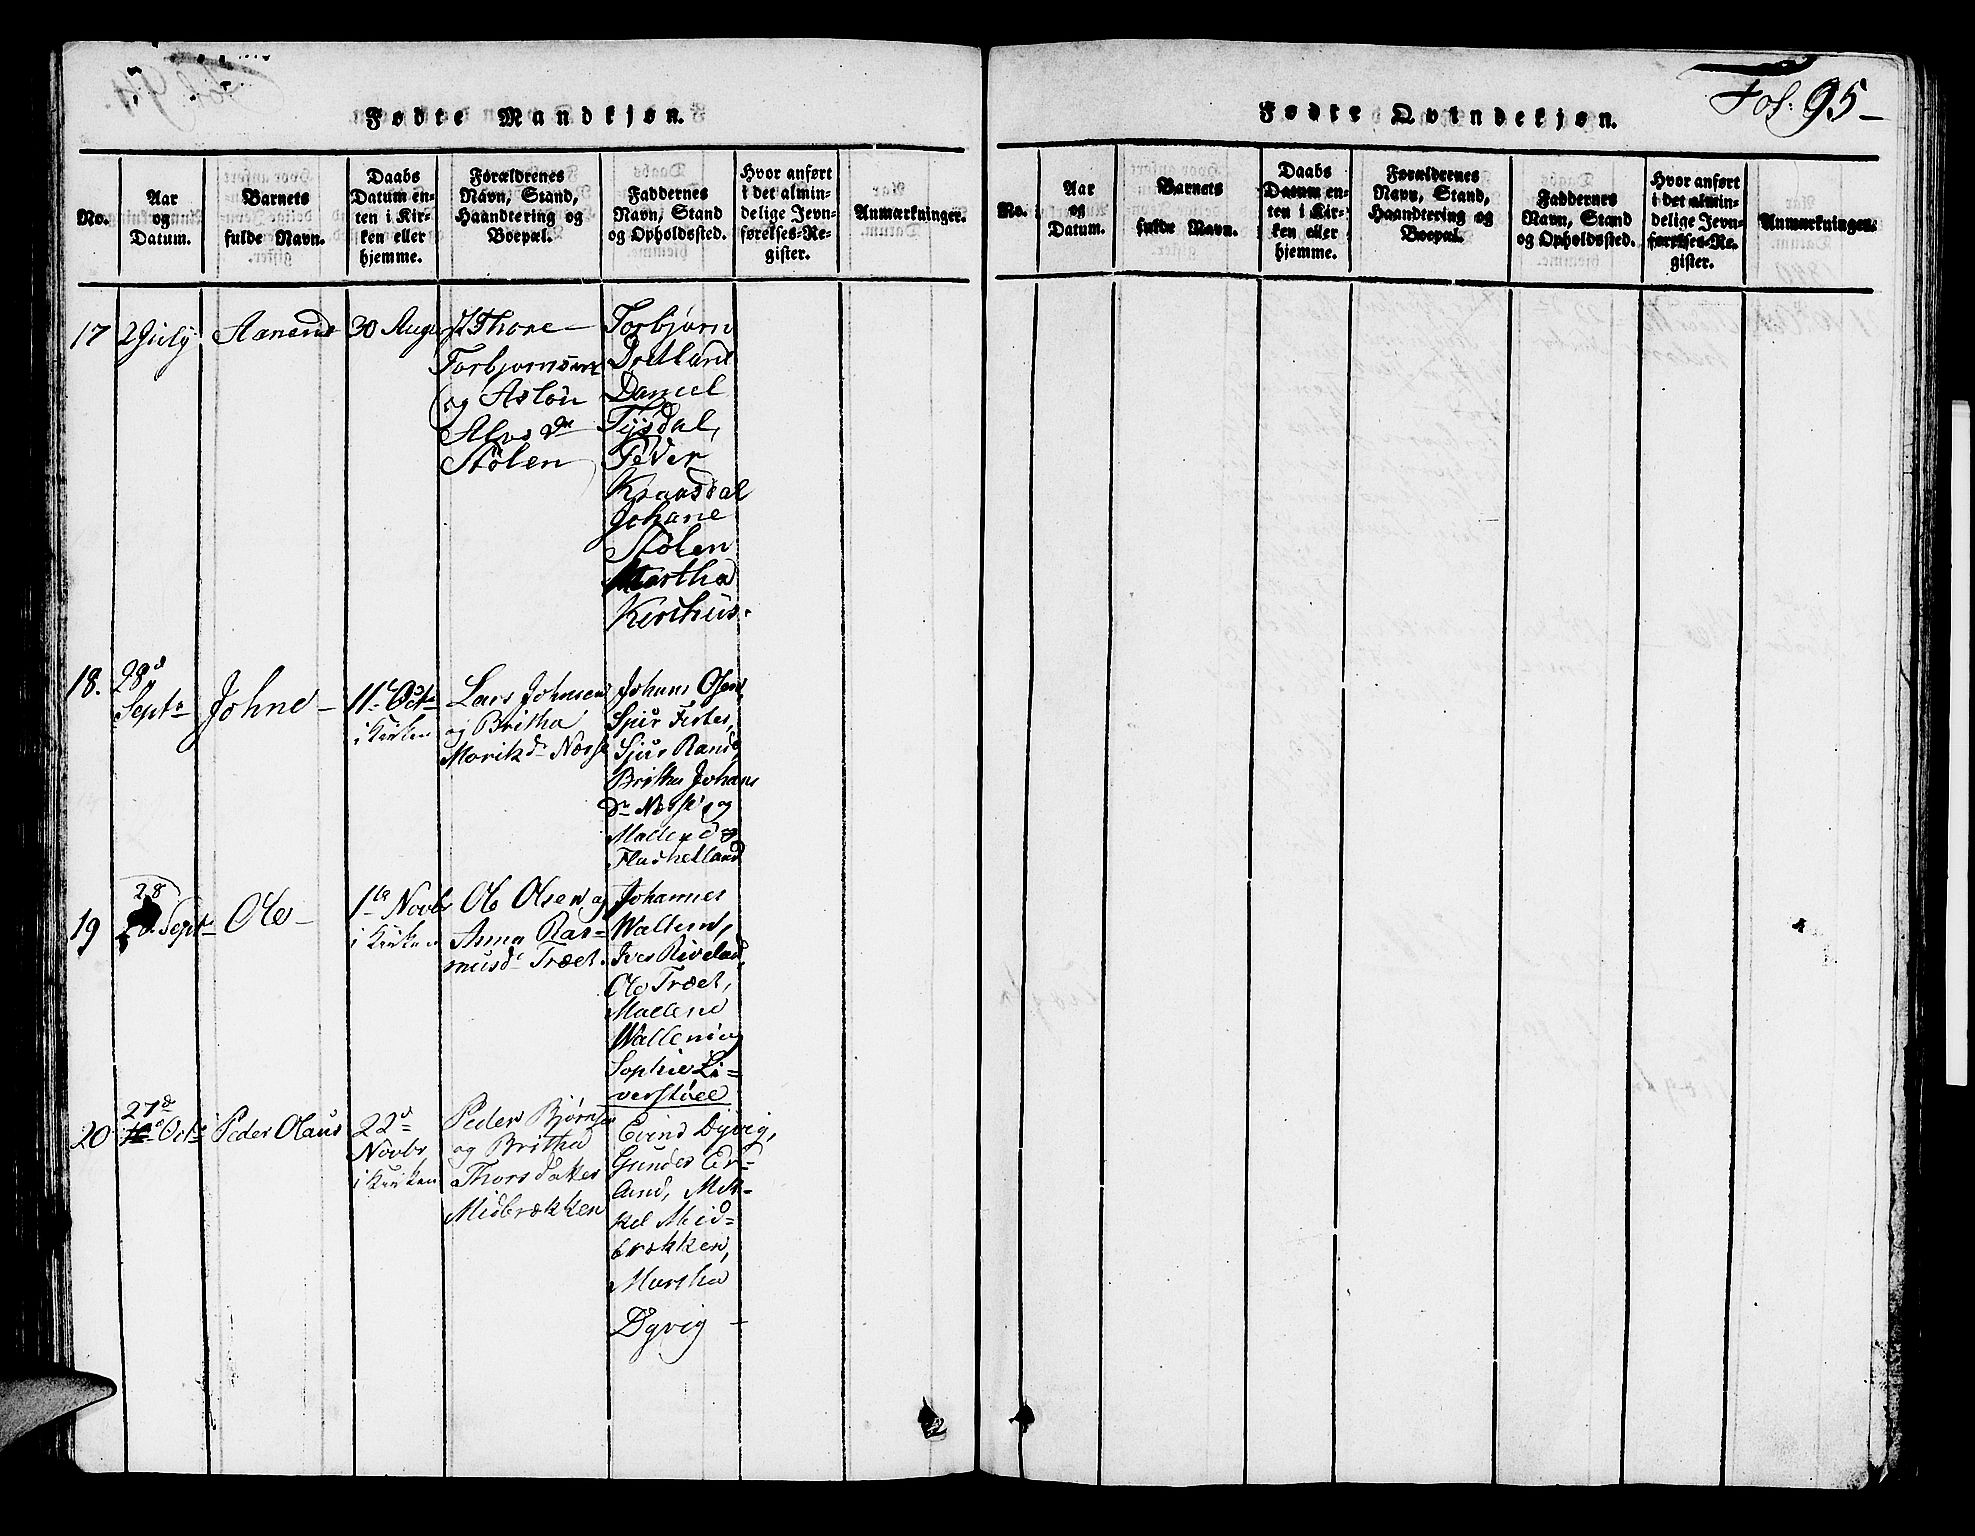 Fødte Mandkjøn.
No.
Aar
og
Datum.
Barnets
fulde Navn.
Daabs
Datum en-
ten i Kir-
ken eller
hjemme.
Forældrenes
Navn, Stand,
Haandtering og
Boepæl.
Faddernes
Navn, Stand
og Opholdssted.
Hvor anført
i det almin-
delige Jevn-
førelses-Re-
gister.
Anmærkninger.
17
2 July
Aanend
30 Aug
Thore
Torbjørnsen
og
Stølen
Torbjørn
Daniel
Tysdal,
Peder
Johane
Stølen
Martha
Kirkhus.
18.
28d
Septr
Johne
11te Octr
i Kirken
Lars Johnsen
og Britha
Johans Osen,
Sjur Rande
Britha Johans
Dr og
Mallene
19
28
Septr
Ole
1te Novbr
i Kirken
Ole Olsen og
Anna Ras=
musdr Træet.
Johannes
Wallem,
Ole Træet,
Mallene
Wallem og
Sophie Li=
verstøll
20
27d
Octr
Peder Olaus
22d
Novbr
i Kirken
Peder Bjørnsen
og Britha
Thorsdatter
Midbrækken
Eivind Dyvig,
land, Mik=
kel Mid=
brækken,
Martha
Dyvig
Fødte Qvindekjøn.
Fol. 95
No.
Aar
og
Datum.
Barnets
fulde Navn.
Daabs
Datum en-
ten i Kir-
ken eller
hjemme.
Forældrenes
Navn, Stand,
Haandtering og
Boepæl.
Faddernes
Navn, Stand
og Opholdssted.
Hvor anført
i det almin-
delige Jevn-
førelses-Re-
gister.
Anmærkninger.